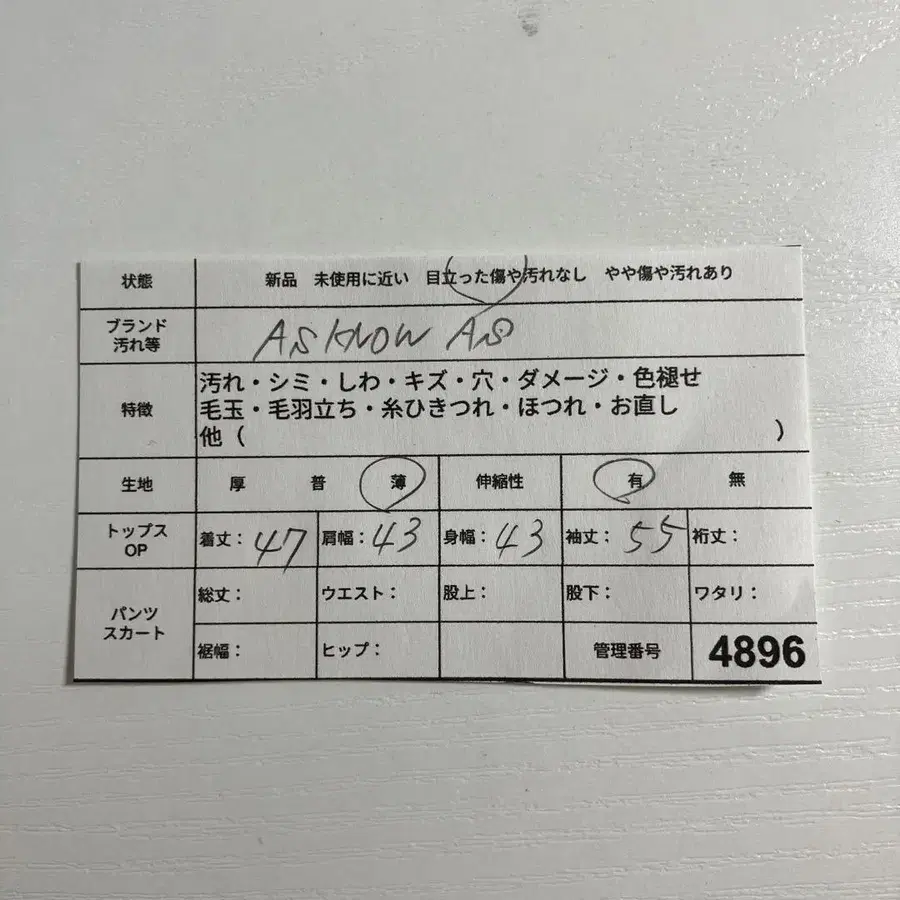 状態 新品 未使用に近い 目立った傷や汚れなし やや傷や汚れあり
ブランド
汚れ等
AS KNOW AS
特徴
汚れ・シミ・しわ・キズ・穴・ダメージ・色褪せ
毛玉・毛羽立ち・糸ひきつれ・ほつれ・お直し
他（ ）
生地 厚 普 薄 伸縮性 有 無
トップス
OP
着丈：47 肩幅：43 身幅：43 袖丈：55 裄丈：
パンツ
スカート
総丈： ウエスト： 股上： 股下： ワタリ：
裾幅： ヒップ： 管理番号 4896